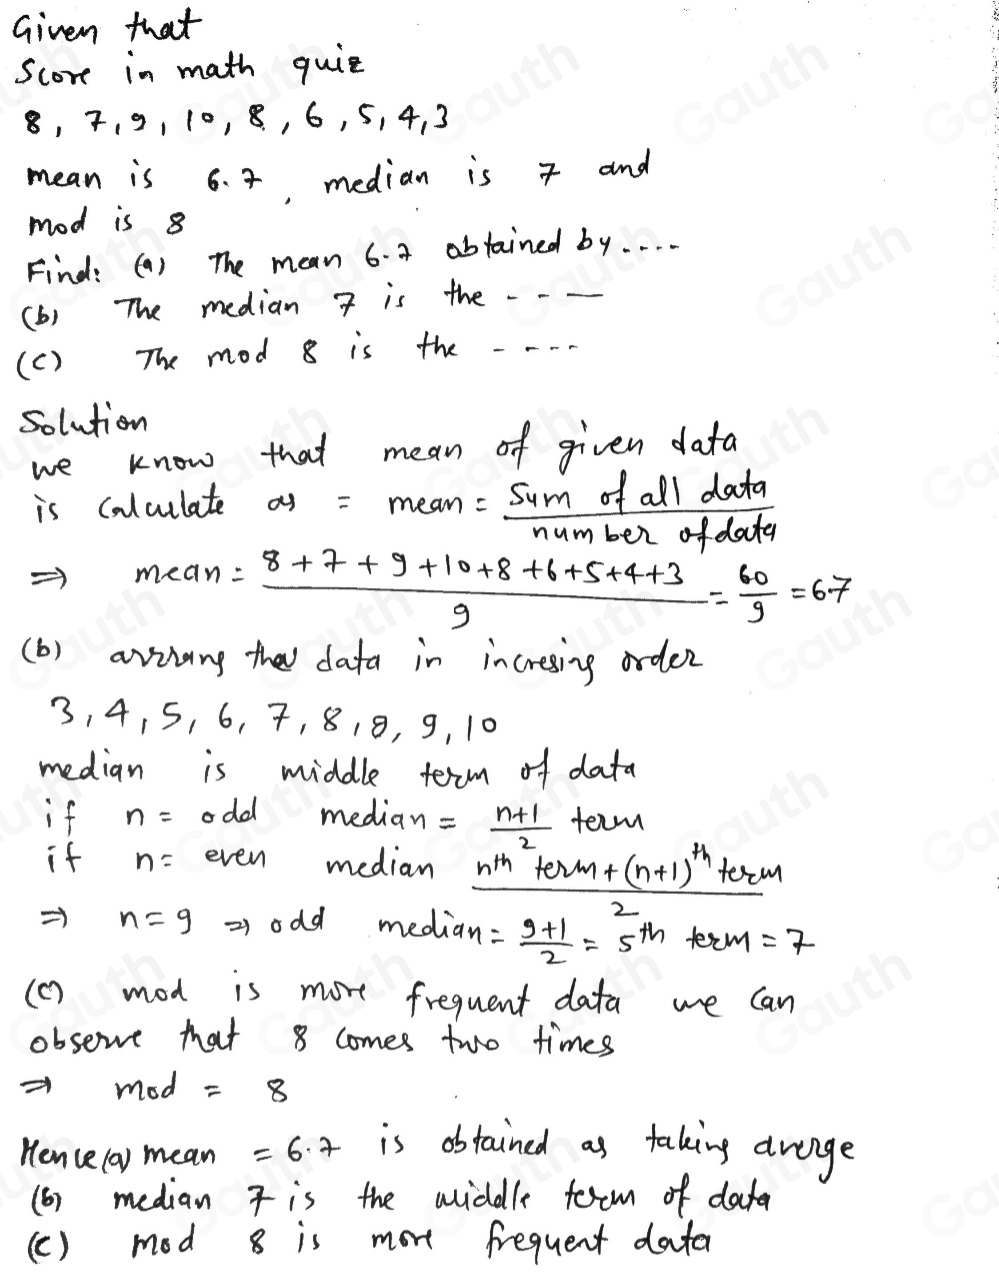 Given that
Score in math quiz
8, 7, 9, 10, 8, 6, 5, 4, 3
mean is 6.7, median is 7 and
mod is 8
Find: (a) The mean 6.7 obtained by ....
(b) The median 7 is the - - —
(c) The mod 8 is the - - - -
Solution
we know that mean of given data
is calculate as = mean = Sum of all data / number of data
⇒ mean = 8+7+9+10+8+6+5+4+3 / 9 = 60/9 = 6.7
(b) arrang the data in incresing order
3, 4, 5, 6, 7, 8, 8, 9, 10
median is middle term of data
if n = odd median = n+1/2 term
if n = even median nth term + (n+1)th term / 2
⇒ n = 9 ⇒ odd median = 9+1/2 = 5th term = 7
(c) mod is more frequent data we can
observe that 8 comes two times
⇒ mod = 8
Hence (a) mean = 6.7 is obtained as taking averge
(b) median 7 is the middle term of data
(c) mod 8 is more frequent data